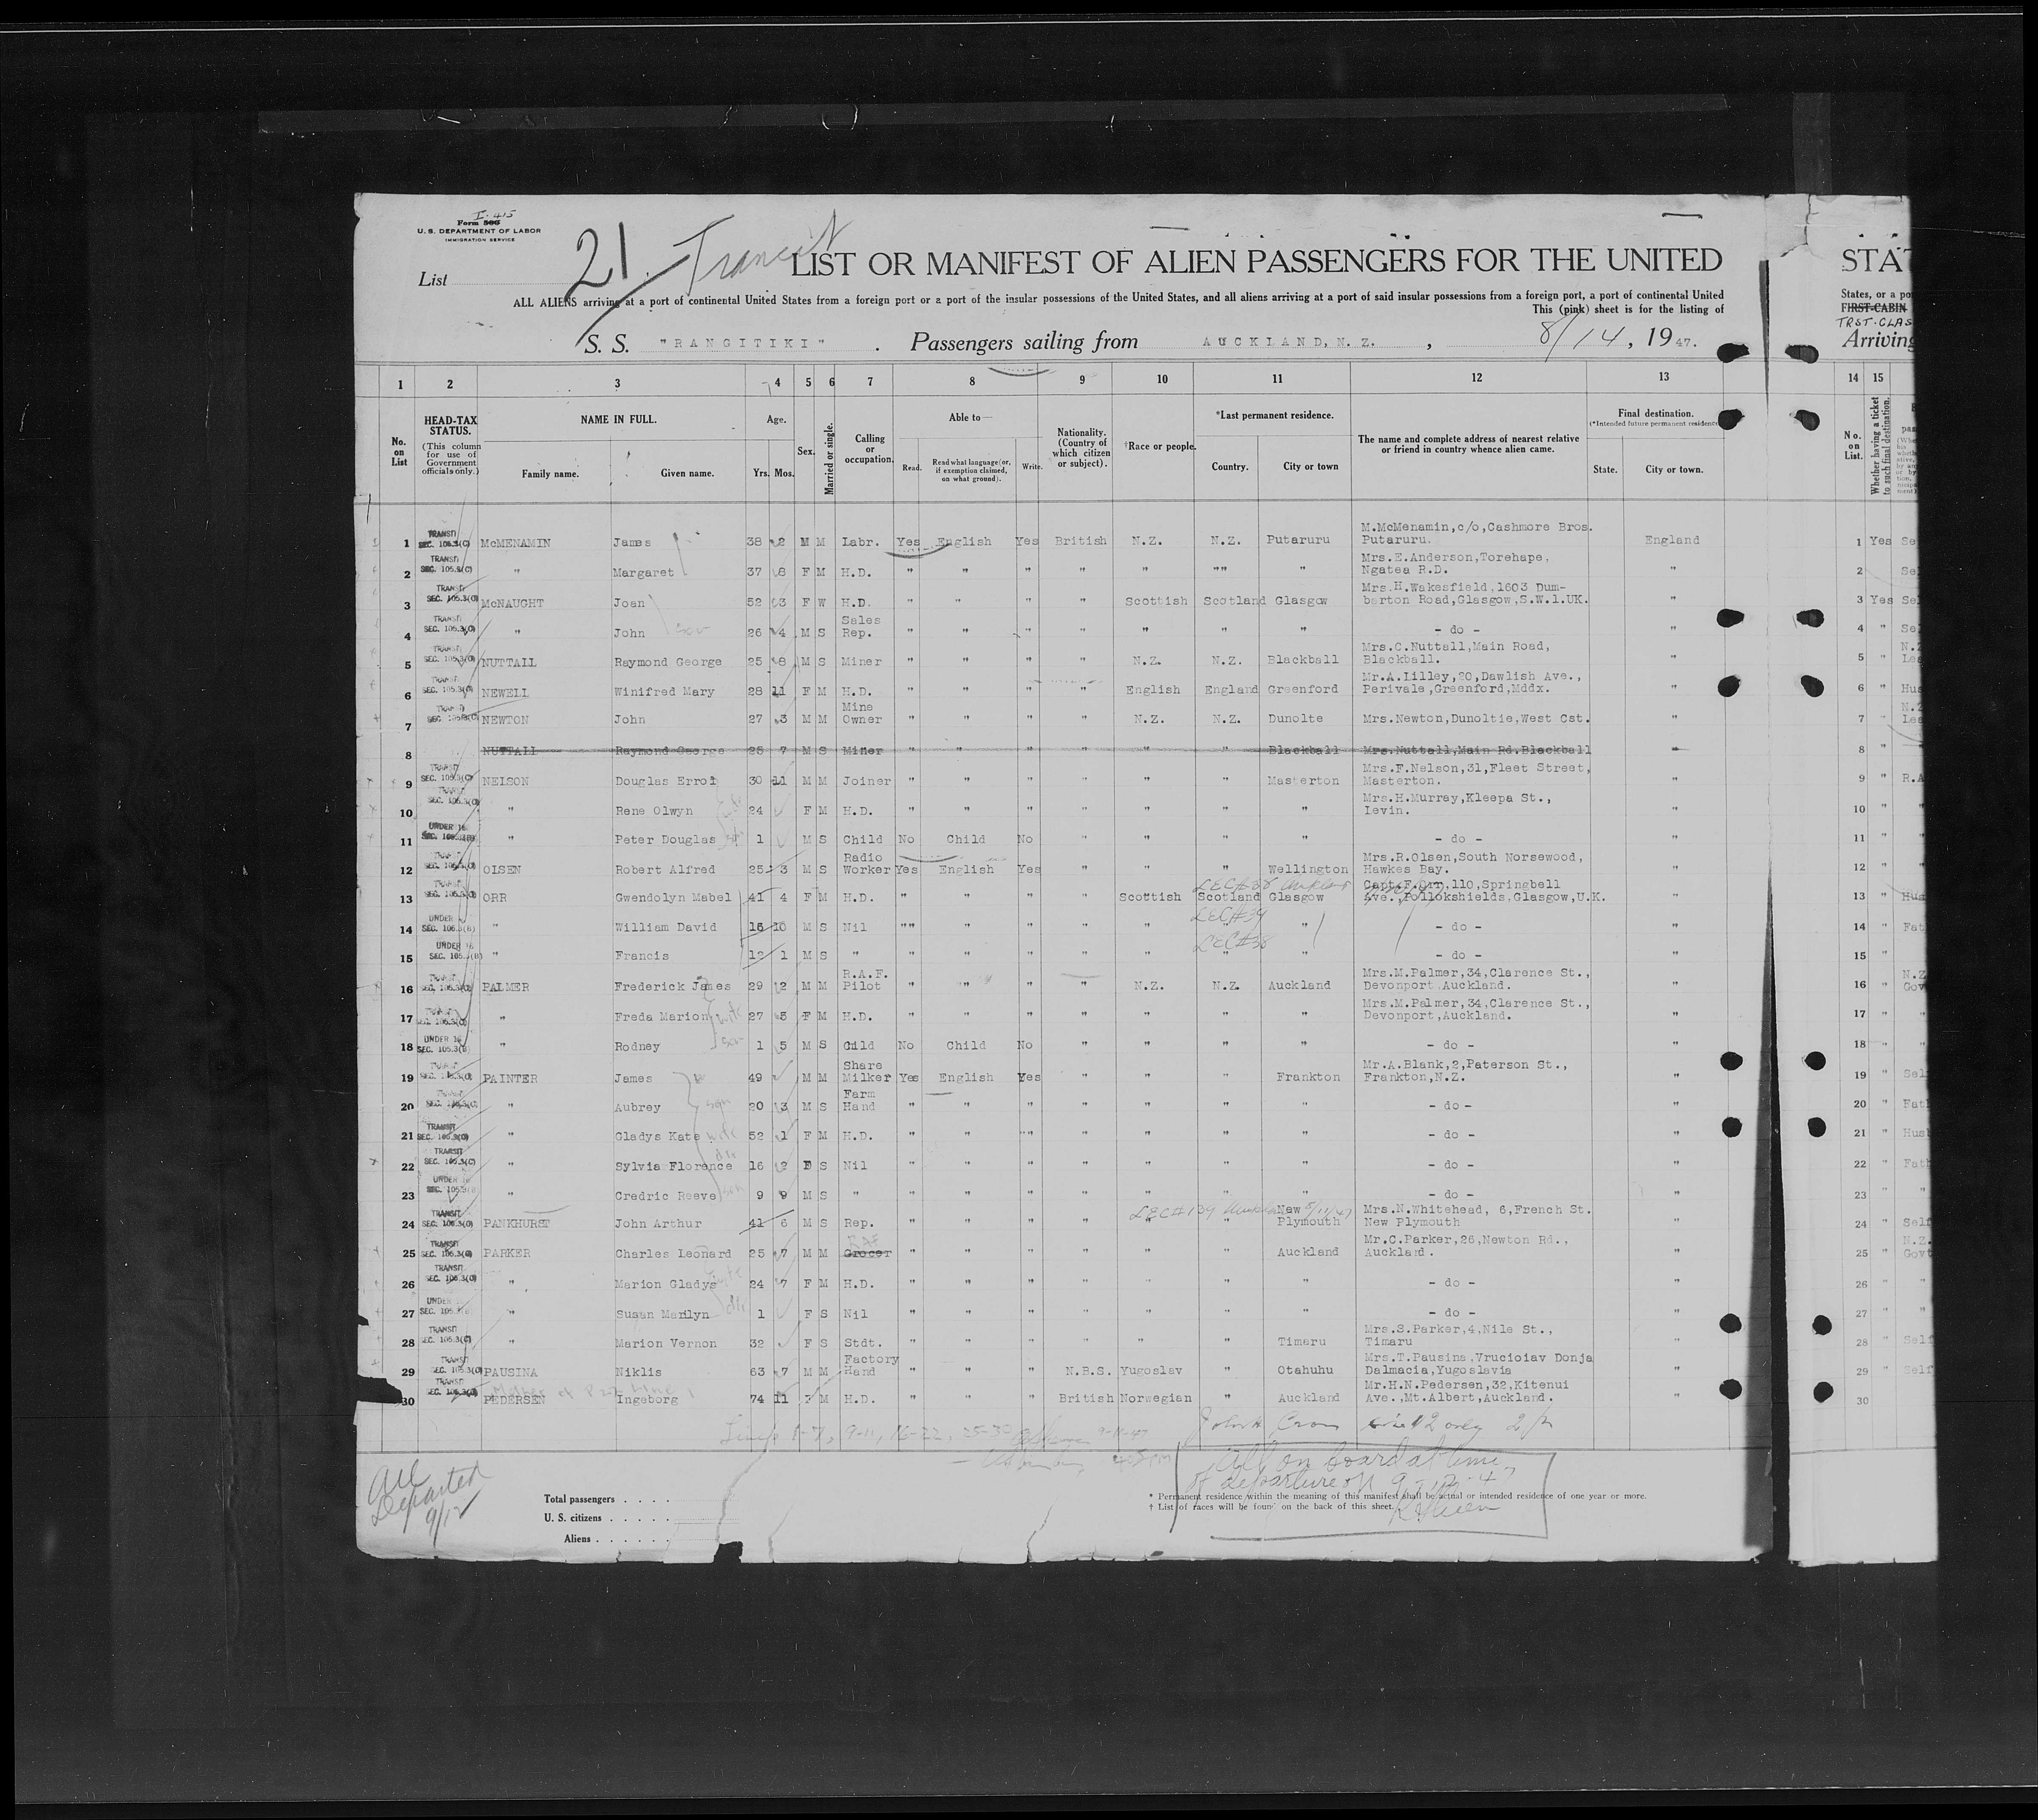 I-415
Form 500
U. S. DEPARTMENT OF LABOR
IMMIGRATION SERVICE
List 21 Transit
LIST OR MANIFEST OF ALIEN PASSENGERS FOR THE UNITED
STAT
ALL ALIENS arriving at a port of continental United States from a foreign port or a port of the insular possessions of the United States, and all aliens arriving at a port of said insular possessions from a foreign port, a port of continental United
States, or a po
This (pink) sheet is for the listing of
FIRST-CABIN
TRST-CLAS
S. S. "RANGITIKI" . Passengers sailing from AUCKLAND, N. Z. , 8/14 , 1947.
Arriving
1 2 3 4 5 6 7 8 9 10 11 12 13 14 15
No. on List
HEAD-TAX STATUS. (This column for use of Government officials only.)
NAME IN FULL. Family name. Given name.
Age. Yrs. Mos.
Sex.
Married or single.
Calling or occupation.
Able to— Read. Read what language (or, if exemption claimed, on what ground). Write.
Nationality. (Country of which citizen or subject).
†Race or people.
*Last permanent residence. Country. City or town
The name and complete address of nearest relative or friend in country whence alien came.
Final destination. (*Intended future permanent residence) State. City or town.
No. on List.
Whether having a ticket to such final destination.
1 TRANSIT SEC. 105.3(C) McMENAMIN James 38 2 M M Labr. Yes English Yes British N.Z. N.Z. Putaruru M.McMenamin,c/o,Cashmore Bros. Putaruru. England 1 Yes Se
2 TRANSIT SEC. 105.3(C) " Margaret 37 8 F M H.D. " " " " " "" " Mrs.E.Anderson,Torehape, Ngatea R.D. " 2 Se
3 TRANSIT SEC. 105.3(C) McNAUGHT Joan 52 3 F W H.D. " " " " Scottish Scotland Glasgow Mrs.H.Wakesfield,1603 Dumbarton Road,Glasgow,S.W.1.UK. " 3 Yes Sel
4 TRANSIT SEC. 105.3(C) " John son 26 4 M S Sales Rep. " " " " " " " - do - " 4 " Se
5 TRANSIT SEC. 105.3(C) NUTTALL Raymond George 25 8 M S Miner " " " " N.Z. N.Z. Blackball Mrs.C.Nuttall,Main Road, Blackball. " 5 " N.Z
6 TRANSIT SEC. 105.3(C) NEWELL Winifred Mary 28 11 F M H.D. " " " " English England Greenford Mr.A.Lilley,20,Dawlish Ave., Perivale,Greenford,Mddx. " 6 " Hus
7 TRANSIT SEC. 105.3(C) NEWTON John 27 3 M M Mine Owner " " " " N.Z. N.Z. Dunolte Mrs.Newton,Dunoltie,West Cst. " 7 " N.Z
8 NUTTALL Raymond George 25 7 M S Miner " " " " " " Blackball Mrs.Nuttall,Main Rd.Blackball " 8 "
9 TRANSIT SEC. 105.3(C) NELSON Douglas Errol 30 11 M M Joiner " " " " " " Masterton Mrs.F.Nelson,31,Fleet Street, Masterton. " 9 " R.A
10 TRANSIT SEC. 105.3(C) " Rene Olwyn 24 F M H.D. " " " " " " " Mrs.H.Murray,Kleepa St., Levin. " 10 " "
11 UNDER 16 SEC. 105.3(B) " Peter Douglas 1 M S Child No Child No " " " " - do - " 11 " "
12 TRANSIT SEC. 105.3(C) OLSEN Robert Alfred 25 3 M S Radio Worker Yes English Yes " " " Wellington Mrs.R.Olsen,South Norsewood, Hawkes Bay. " 12 " "
13 TRANSIT SEC. 105.3(C) ORR Gwendolyn Mabel 41 4 F M H.D. " " " " Scottish Scotland Glasgow Capt.F.Orr,110,Springbell Ave.,Pollokshields,Glasgow,U.K. " 13 " Hus
14 UNDER SEC. 105.3(B) " William David 16 10 M S Nil "" " " " " LEC#39 " " - do - " 14 " Fat
15 UNDER 16 SEC. 105.3(B) " Francis 12 1 M S " " " " " " LEC#38 " " - do - " 15 " "
16 TRANSIT SEC. 105.3(C) PALMER Frederick James 29 2 M M R.A.F. Pilot " " " " N.Z. N.Z. Auckland Mrs.M.Palmer,34,Clarence St., Devonport,Auckland. " 16 " N.Z Gov
17 TRANSIT SEC. 105.3(C) " Freda Marion wife 27 5 F M H.D. " " " " " " " Mrs.M.Palmer,34,Clarence St., Devonport,Auckland. " 17 " "
18 UNDER 16 SEC. 105.3(B) " Rodney son 1 5 M S Cild No Child No " " " " - do - " 18 " "
19 TRANSIT SEC. 105.3(C) PAINTER James 49 M M Share Milker Yes English Yes " " " Frankton Mr.A.Blank,2,Paterson St., Frankton,N.Z. " 19 " Sel
20 TRANSIT SEC. 105.3(C) " Aubrey son 20 3 M S Farm Hand " " " " " " " - do - " 20 " Fat
21 TRANSIT SEC. 105.3(C) " Gladys Kate wife 52 1 F M H.D. " " "" " " " " - do - " 21 " Husb
22 TRANSIT SEC. 105.3(C) " Sylvia Florence 16 2 F S Nil " " " " " " " - do - " 22 " Fath
23 UNDER 16 SEC. 105.3(B) " Credric Reeve son 9 9 M S " " " " " " " " - do - " 23 " "
24 TRANSIT SEC. 105.3(C) PANKHURST John Arthur 41 6 M S Rep. " " " " " " New Plymouth Mrs.N.Whitehead, 6,French St. New Plymouth " 24 " Self
25 TRANSIT SEC. 105.3(C) PARKER Charles Leonard 25 7 M M Grocer RAF " " " " " " Auckland Mr.C.Parker,26,Newton Rd., Auckland. " 25 " N.Z. Govt
26 TRANSIT SEC. 105.3(C) " Marion Gladys wife 24 7 F M H.D. " " " " " " " - do - " 26 " "
27 UNDER SEC. 105.3(B) " Susan Marilyn 1 F S Nil " " " " " " " - do - " 27 " "
28 TRANSIT SEC. 105.3(C) " Marion Vernon 32 F S Stdt. " " " " " " Timaru Mrs.S.Parker,4,Nile St., Timaru " 28 " Self
29 TRANSIT SEC. 105.3(C) PAUSINA Niklis 63 7 M M Factory Hand " " " N.B.S. Yugoslav " Otahuhu Mrs.T.Pausina,Vrucioiav Donja Dalmacia,Yugoslavia " 29 " Self
30 TRANSIT SEC. 105.3(C) PEDERSEN Ingeborg 74 11 F M H.D. " " " British Norwegian " Auckland Mr.H.N.Pedersen,32,Kitenui Ave.,Mt.Albert,Auckland. " 30
Lines 1-7, 9-11, 16-22, 25-30
All on board at time
of departure
All
Departed
9/12
Total passengers . . . .
U. S. citizens . . . . .
Aliens . . . . . .
* Permanent residence within the meaning of this manifest shall be actual or intended residence of one year or more.
† List of races will be found on the back of this sheet.